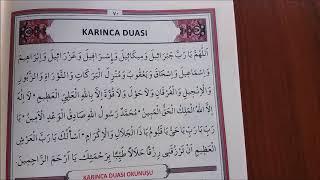 ٧٠
KARINCA DUASI
اَللّٰهُمَّ يَا رَبَّ جَبْرَائِيلَ وَمِيكَائِيلَ وَاِسْرَافِيلَ وَعَزْرَائِيلَ وَاِبْرَاهِيمَ
وَاِسْمَاعِيلَ وَاِسْحَاقَ وَيَعْقُوبَ وَمُنْزِلَ الْبَرَكَاتِ وَالتَّوْرَاةِ وَالزَّبُورِ
وَالْاِنْجِيلِ وَالْفُرْقَانِ وَلَا حَوْلَ وَلَا قُوَّةَ اِلَّا بِاللّٰهِ الْعَلِيِّ الْعَظِيمِ لَا اِلٰهَ
اِلَّا اللّٰهُ الْمَلِكُ الْحَقُّ الْمُبِينُ مُحَمَّدٌ رَسُولُ اللّٰهِ صَادِقُ الْوَعْدِ الْاَمِينُ يَا
رَبِّ يَا رَبِّ يَا حَيُّ يَا قَيُّومُ يَا ذَا الْجَلَالِ وَالْاِكْرَامِ اَسْأَلُكَ يَا رَبَّ الْعَرْشِ
الْعَظِيمِ اَنْ تَرْزُقَنِي رِزْقًا حَلَالًا طَيِّبًا بِرَحْمَتِكَ يَا اَرْحَمَ الرَّاحِمِينَ
KARINCA DUASI OKUNUŞU